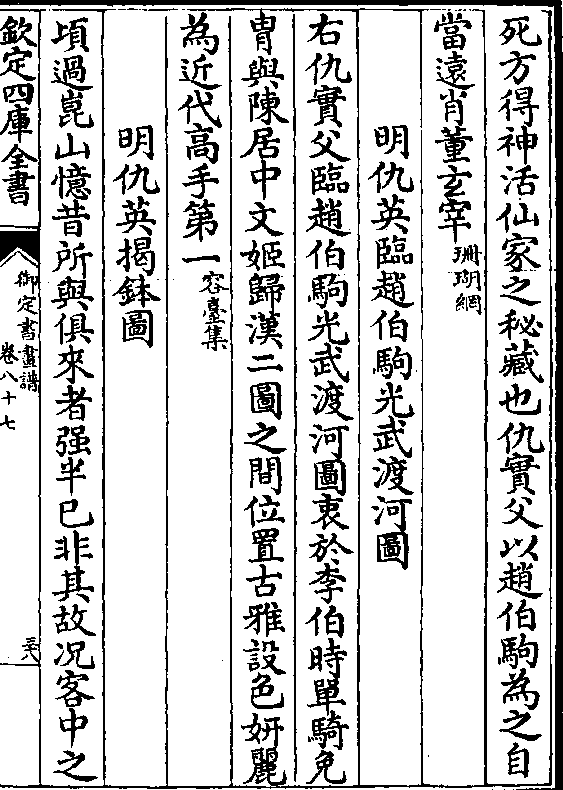 死方得神活仙家之秘藏也仇實父以趙伯駒為之自
當遠肖董玄宰珊瑚網
明仇英臨趙伯駒光武渡河圖
右仇實父臨趙伯駒光武渡河圖衷於李伯時單騎免
胄與陳居中文姬歸漢二圖之間位置古雅設色妍麗
為近代高手第一容臺集
明仇英揭鉢圖
頃過崑山憶昔所與俱來者强半已非其故况客中之
欽定四庫全書
御定書畫譜
卷八十七
三八